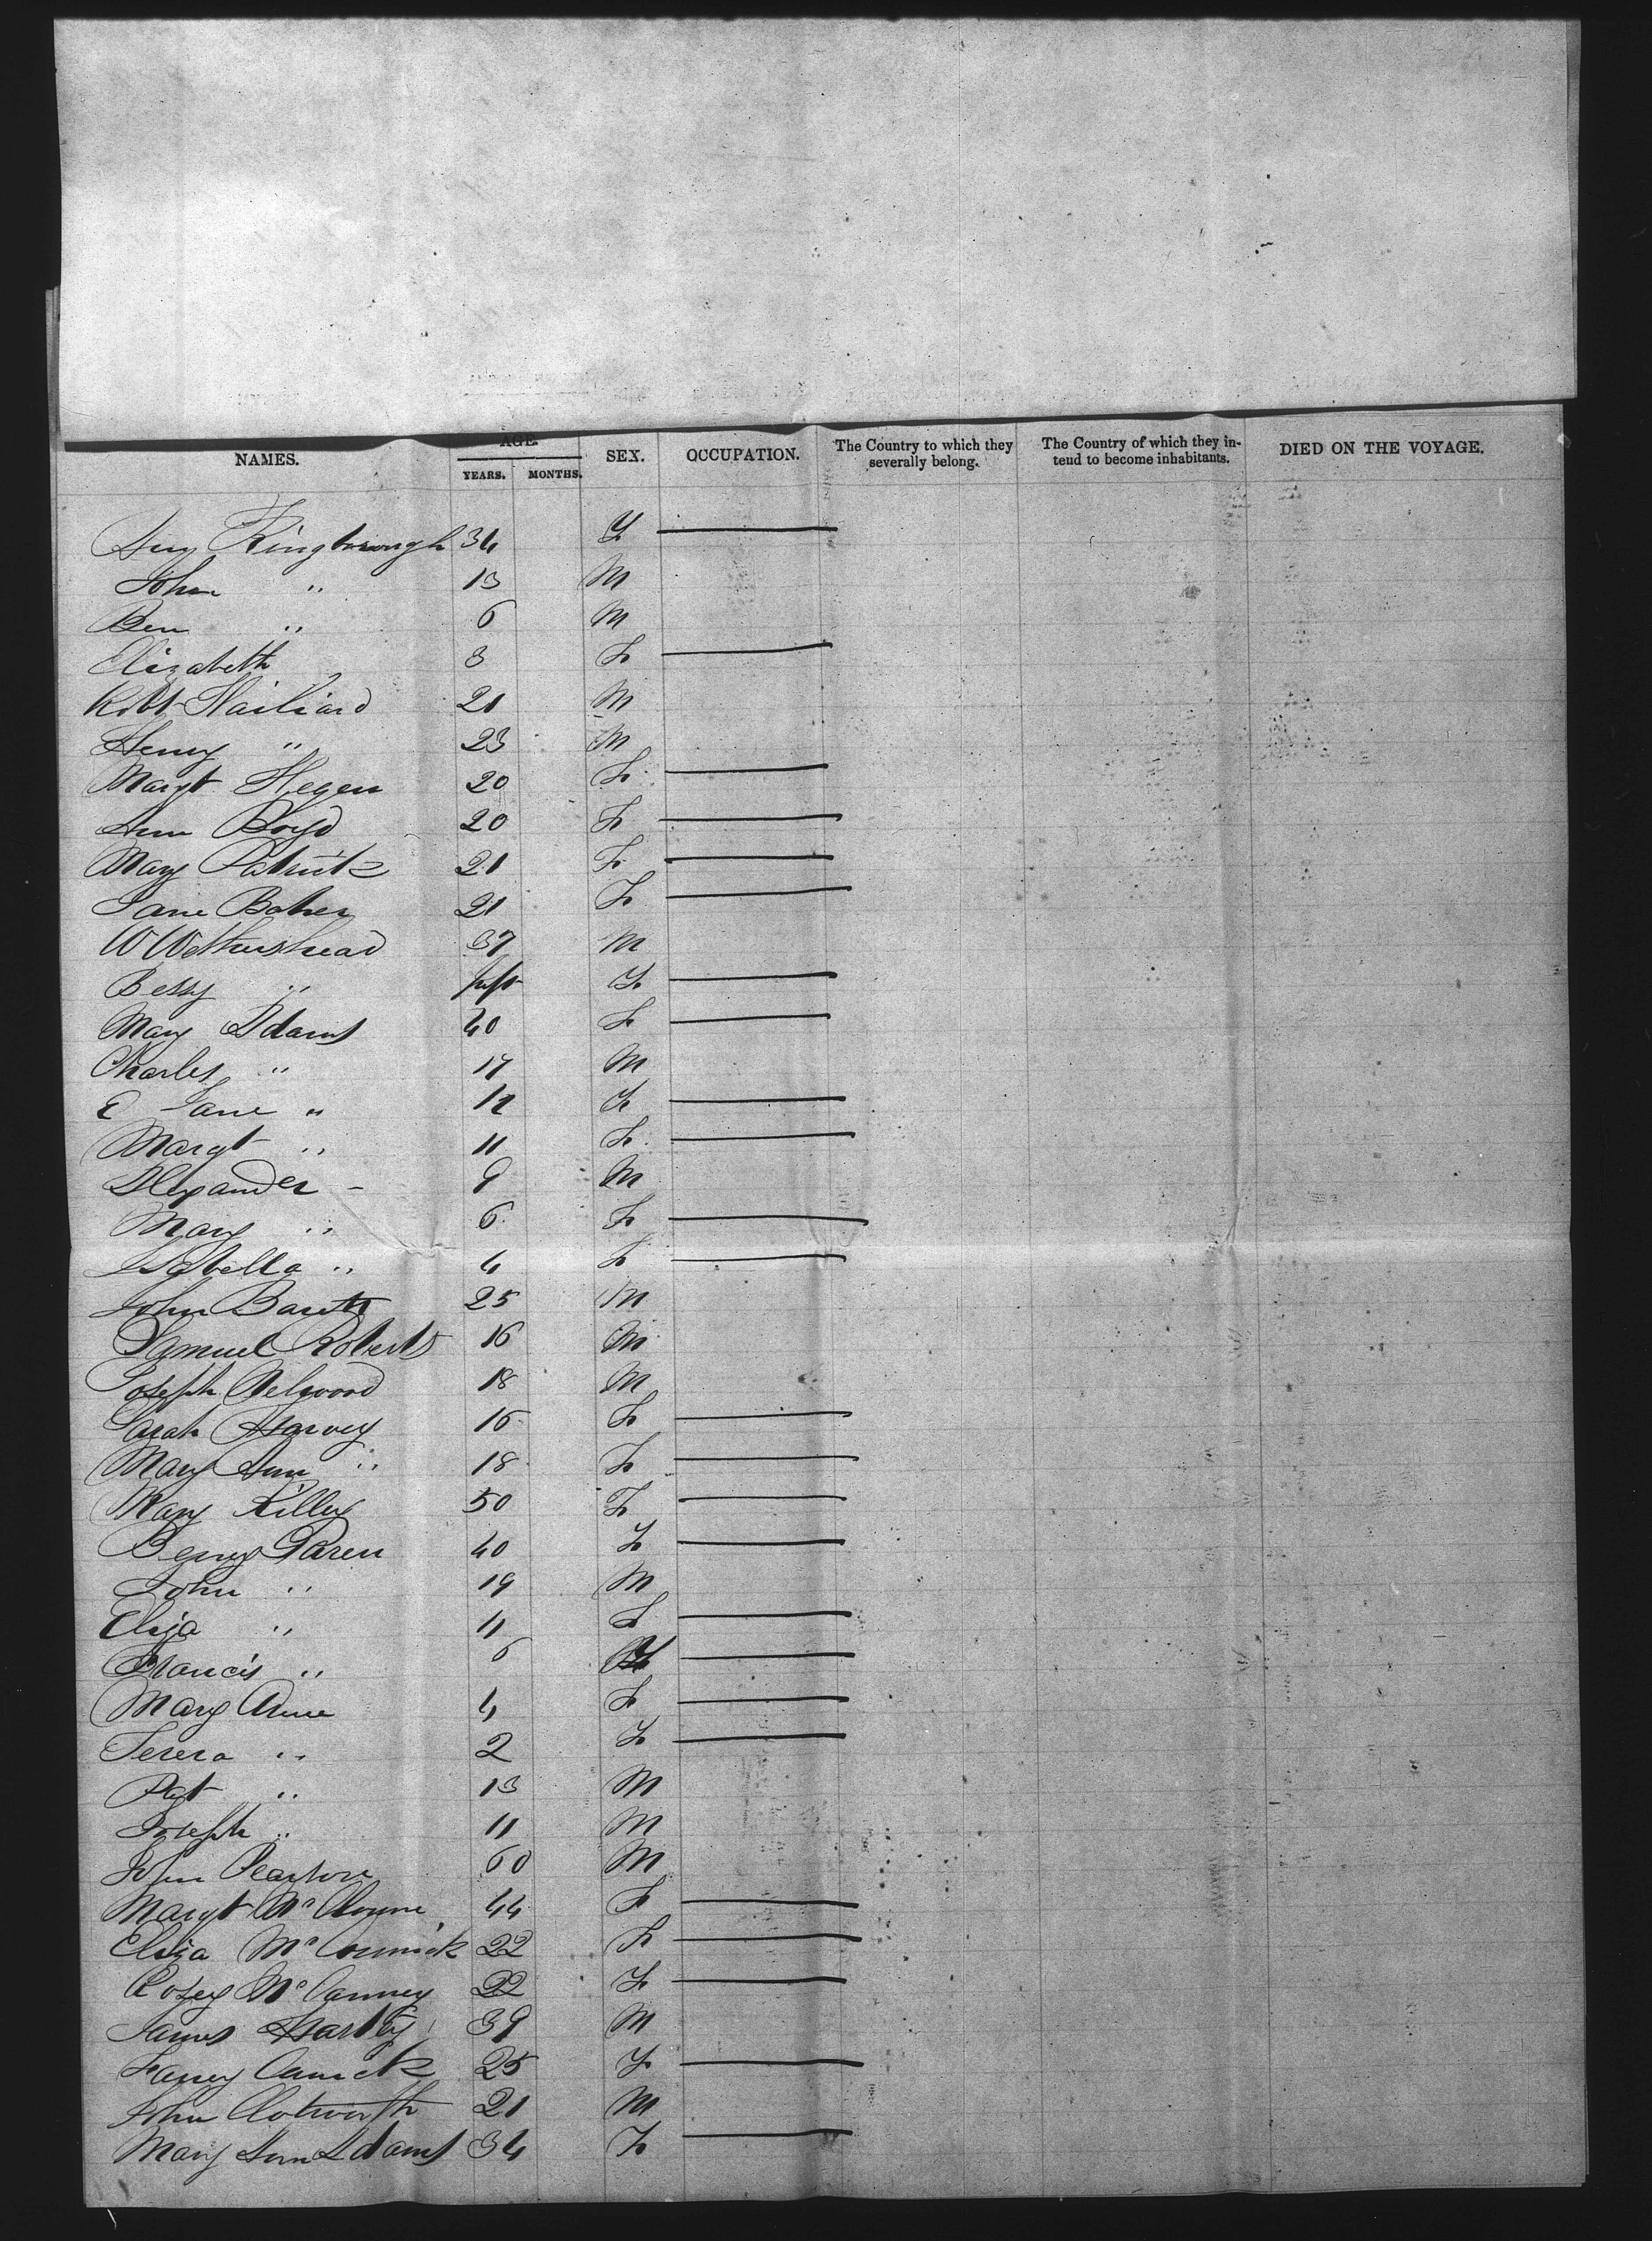 AGE.
NAMES. YEARS. MONTHS. SEX. OCCUPATION. The Country to which they severally belong. The Country of which they intend to become inhabitants. DIED ON THE VOYAGE.
Kingborough 34 F
John " 13 M
Ben " 6 M
Elizabeth 3 F
Robt Hailiard 21 M
Henry " 23 M
Margt Hegen 20 F
Ann Boyd 20 F
Mary Patrick 21 F
Jane Baker 21 F
W Wethershead 37 M
Bessy " Inft F
Mary Adams 40 F
Charles " 17 M
E Jane " 12 F
Margt " 11 F
Alexander - 9 M
Mary " 6 F
Isabella " 4 F
John 25 M
Samuel Roberts 16 M
Joseph Welgood 18 M
Sarah Harvey 16 F
Mary Ann " 18 F
Mary Killey 50 F
Paren 40 F
John " 19 M
Eliza " 11 F
Francis " 6 F
Mary Anne 4 F
Teresa " 2 F
Pat " 13 M
Joseph " 11 M
John Pearson 60 M
Margt 44 F
Eliza McCormick 22 F
Rosey McCanney 22 F
James Hartley 39 M
Fanny 25 F
John Clotworth 21 M
Mary Ann Adams 34 F